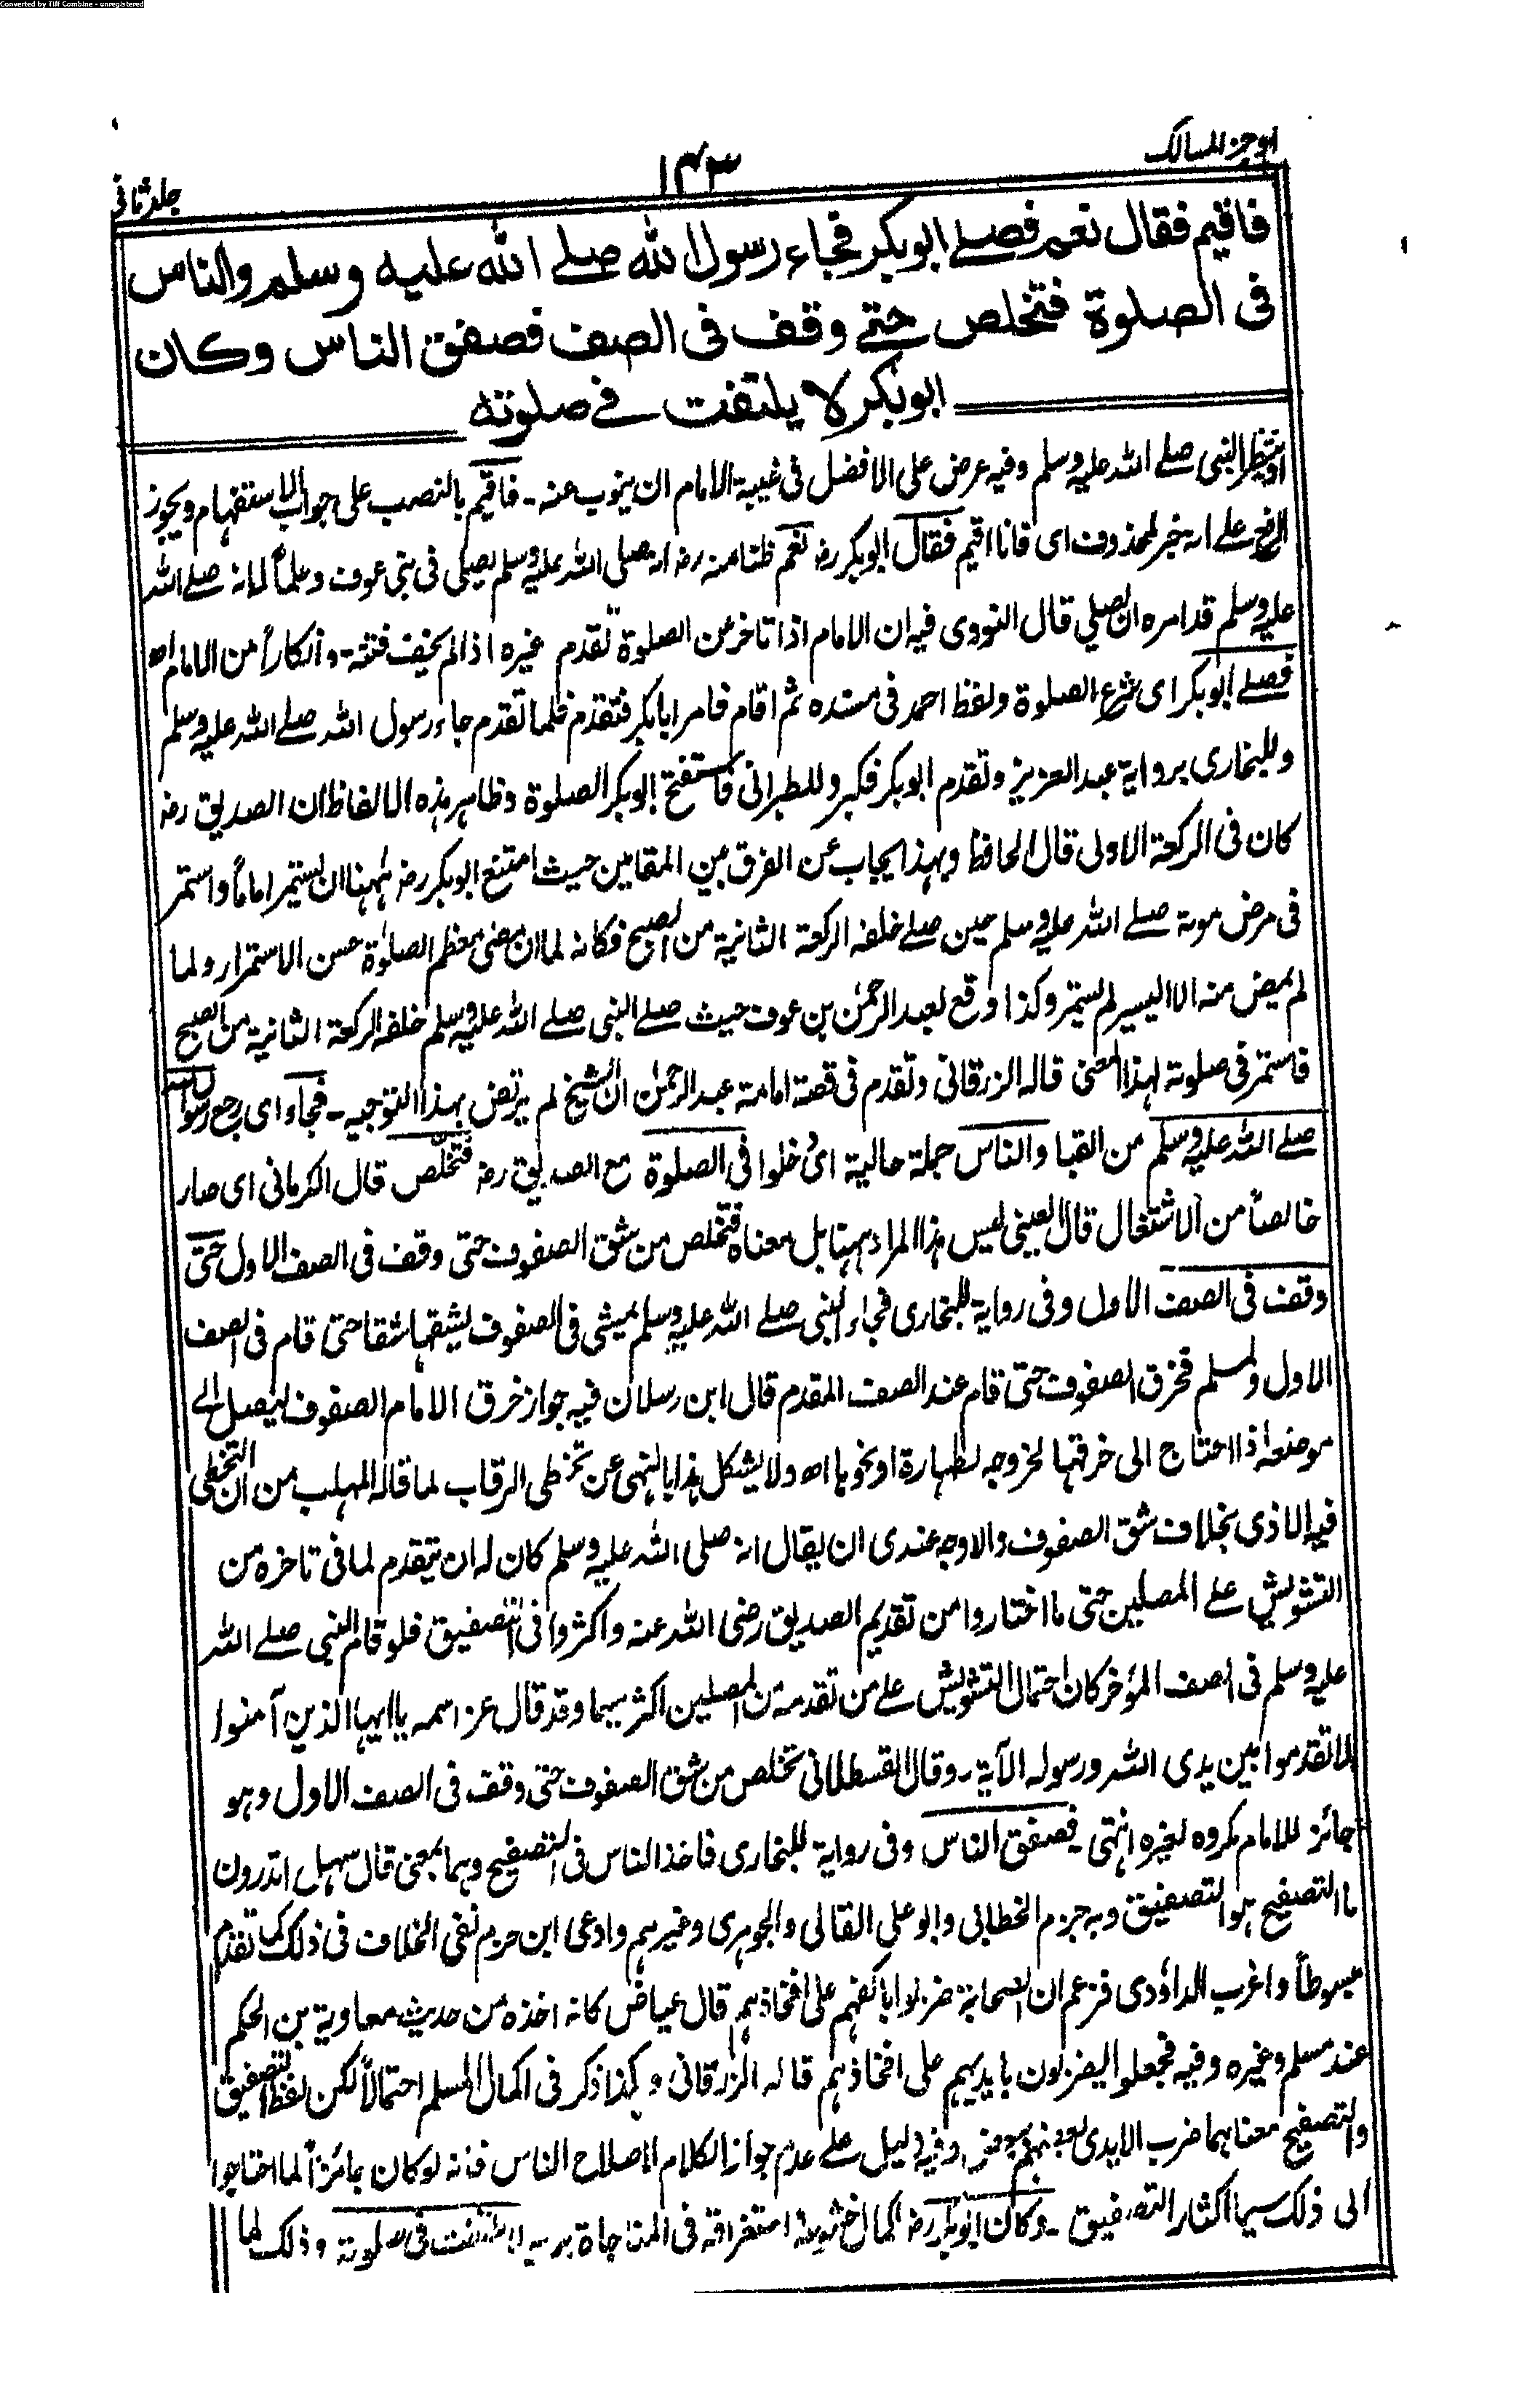 Converted by Tiff Combine - unregistered
اوجز المسالك
١٤٣
جلد ثانی
فاقيم فقال نعم فصلے ابوبكر فجاء رسول الله صلے الله عليه وسلم والناس
فی الصلوة فتخلص حتے وقف فی الصف فصفق الناس وكان
ابوبكر لا يلتفت فے صلوته
او ينتظر النبی صلے الله عليه وسلم وفيه عرض علی الافضل فی غيبة الامام ان ينوب عنه - فاقيم بالنصب علی جواب الاستفهام ويجوز
الرفع علے انه خبر لمحذوف ای فانا اقيم فقال ابوبكر رضہ نعم ظنا منه رضہ انه صلی الله عليه وسلم يصلی فی بنی عوف وعلماً لما انه صلے الله
عليه وسلم قد امره ان يصلي قال النووی فيه ان الامام اذا تاخر عن الصلوة تقدم غيره اذا لم يخف فتنة - وانكاراً من الامام اه
فصلے ابوبكر ای شرع الصلوة ولفظ احمد فی مسنده ثم اقام فامر ابابكر فتقدم فلما تقدم جاء رسول الله صلے الله عليه وسلم
وللبخاری برواية عبد العزيز وتقدم ابوبكر فكبر وللطبرانی فاستفتح ابوبكر الصلوة وظاهر هذه الالفاظ ان الصديق رضہ
كان فی الركعة الاولی قال الحافظ وبهذا يجاب عن الفرق بين المقامين حيث امتنع ابوبكر رضہ ههنا ان يستمر اماماً واستمر
فی مرض موته صلے الله عليه وسلم حين صلے خلفه الركعة الثانية من الصبح فكانه لما ان مضی معظم الصلوٰة حسن الاستمرار ولما
لم يمض منه الا اليسير لم يستمر وكذا وقع لعبد الرحمٰن بن عوف حيث صلے النبی صلے الله عليه وسلم خلفه الركعة الثانية من الصبح
فاستمر فی صلوته لهذا المعنی قاله الزرقانی وتقدم فی قصة امامة عبد الرحمٰن ان الشيخ لم يرتض بهذا التوجيه - فجاء ای رجع رسول الله
صلے الله عليه وسلم من القبا والناس جملة حالية ای دخلوا فی الصلوة مع الصديق رضہ فتخلص قال الكرمانی ای صار
خالصاً من الاشتغال قال العينی ليس هذا المراد ههنا بل معناه فتخلص من شق الصفوف حتی وقف فی الصف الاول حتی
وقف فی الصف الاول وفی رواية للبخاری فجاء النبی صلے الله عليه وسلم يمشی فی الصفوف يشقها شقا حتی قام فی الصف
الاول ولمسلم فخرق الصفوف حتی قام عند الصف المقدم قال ابن رسلان فيه جواز خرق الامام الصفوف ليصل الے
موضعه اذا احتاج الی خرقها لخروجه لطهارة او نحوها اه ولا يشكل هذا بالنهی عن تخطی الرقاب لما قاله المهلب من ان التخطی
فيه الاذی بخلاف شق الصفوف والاوجه عندی ان يقال انه صلی الله عليه وسلم كان له ان يتقدم لما فی تاخره من
التشويش علے المصلين حتی ما اختاروا من تقديم الصديق رضی الله عنه واكثروا فی التصفيق فلو قام النبی صلے الله
عليه وسلم فی الصف المؤخر كان احتمال التشويش علے من تقدمه من المصلين اكثر سيما وقد قال عز اسمه يا ايها الذين آمنوا
لا تقدموا بين يدی الله ورسوله الآية - وقال القسطلانی تخلص من شق الصفوف حتی وقف فی الصف الاول وهو
جائز للامام مكروه لغيره انتهی - فصفق الناس وفی رواية للبخاری فاخذ الناس فی التصفيح وهما بمعنی قال سهل اتدرون
ما التصفيح هو التصفيق وبه جزم الخطابی وابو علی القالی والجوهری وغيرهم وادعی ابن حزم نفی الخلاف فی ذلك كما تقدم
مبسوطاً واغرب الداؤدی فزعم ان الصحابة ضربوا باكفهم علی افخاذهم قال عياض كانه اخذه من حديث معاوية بن الحكم
عند مسلم وغيره وفيه فجعلوا يضربون بايديهم علی افخاذهم قاله الزرقانی وكذا ذكر فی اكمال المسلم احتمالاً لكن لفظ التصفيق
والتصفيح معناهما ضرب الايدی بعضهم ببعض وفيه دليل علے عدم جواز الكلام لاصلاح الناس فانه لو كان جائزاً لما احتاجوا
الی ذلك سيما اكثار التصفيق - وكان ابوبكر رضہ لكمال خشوعه استغراقه فی المناجاة بربه لا يلتفت فی صلوته وذلك لما